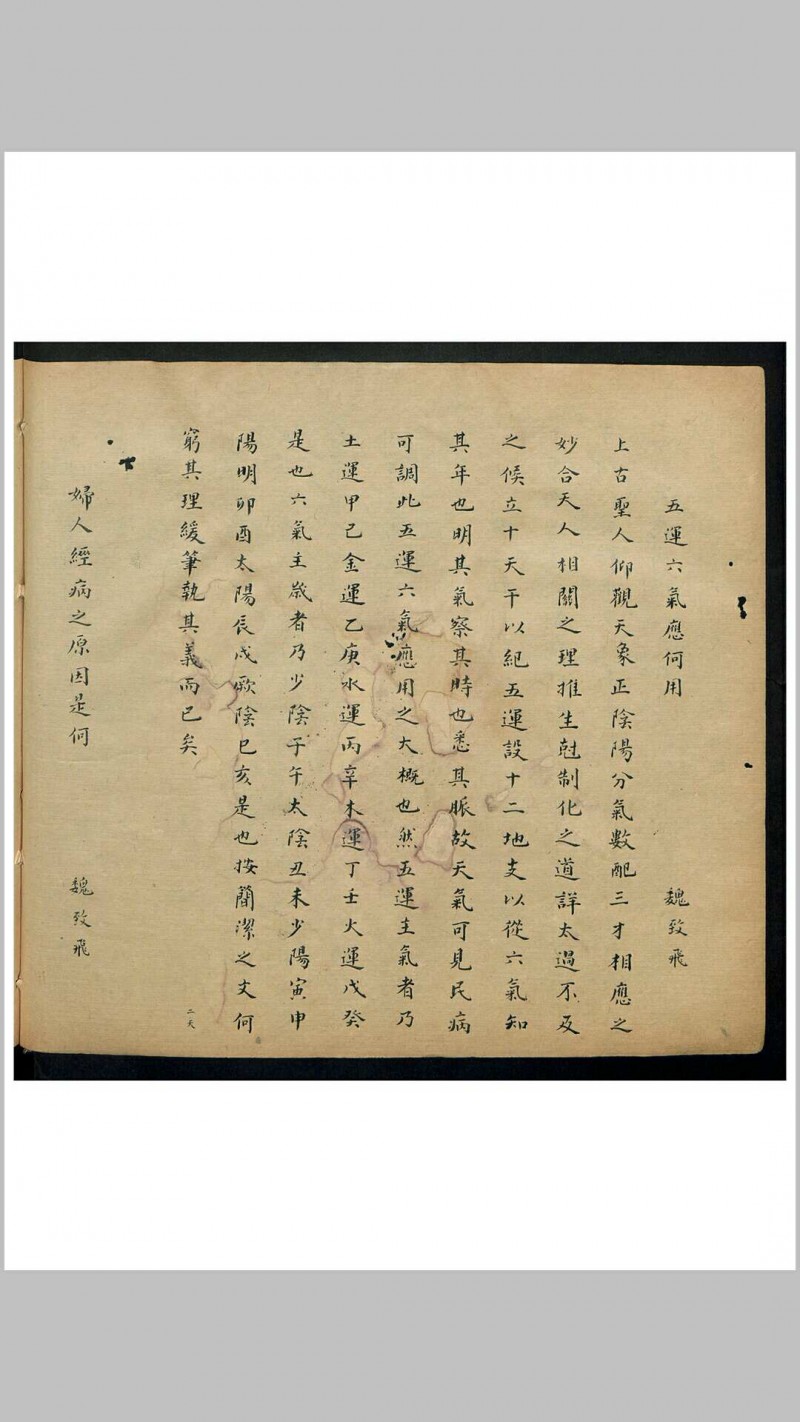 五運六氣應何用 魏致飛
上古聖人仰觀天象正陰陽分氣數配三才相應之
妙合天人相關之理推生尅制化之道詳太過不及
之候立十天干以紀五運設十二地支以從六氣知
其年也明其氣察其時也悉其脈故天氣可見民病
可調此五運六氣應用之大概也然五運主氣者乃
土運甲己金運乙庚水運丙辛木運丁壬火運戊癸
是也六氣主歲者乃少陰子午太陰丑未少陽寅申
陽明卯酉太陽辰戌厥陰巳亥是也按簡潔之文何
窮其理緩筆執其義而已矣
二天
婦人經病之原因是何 魏致飛